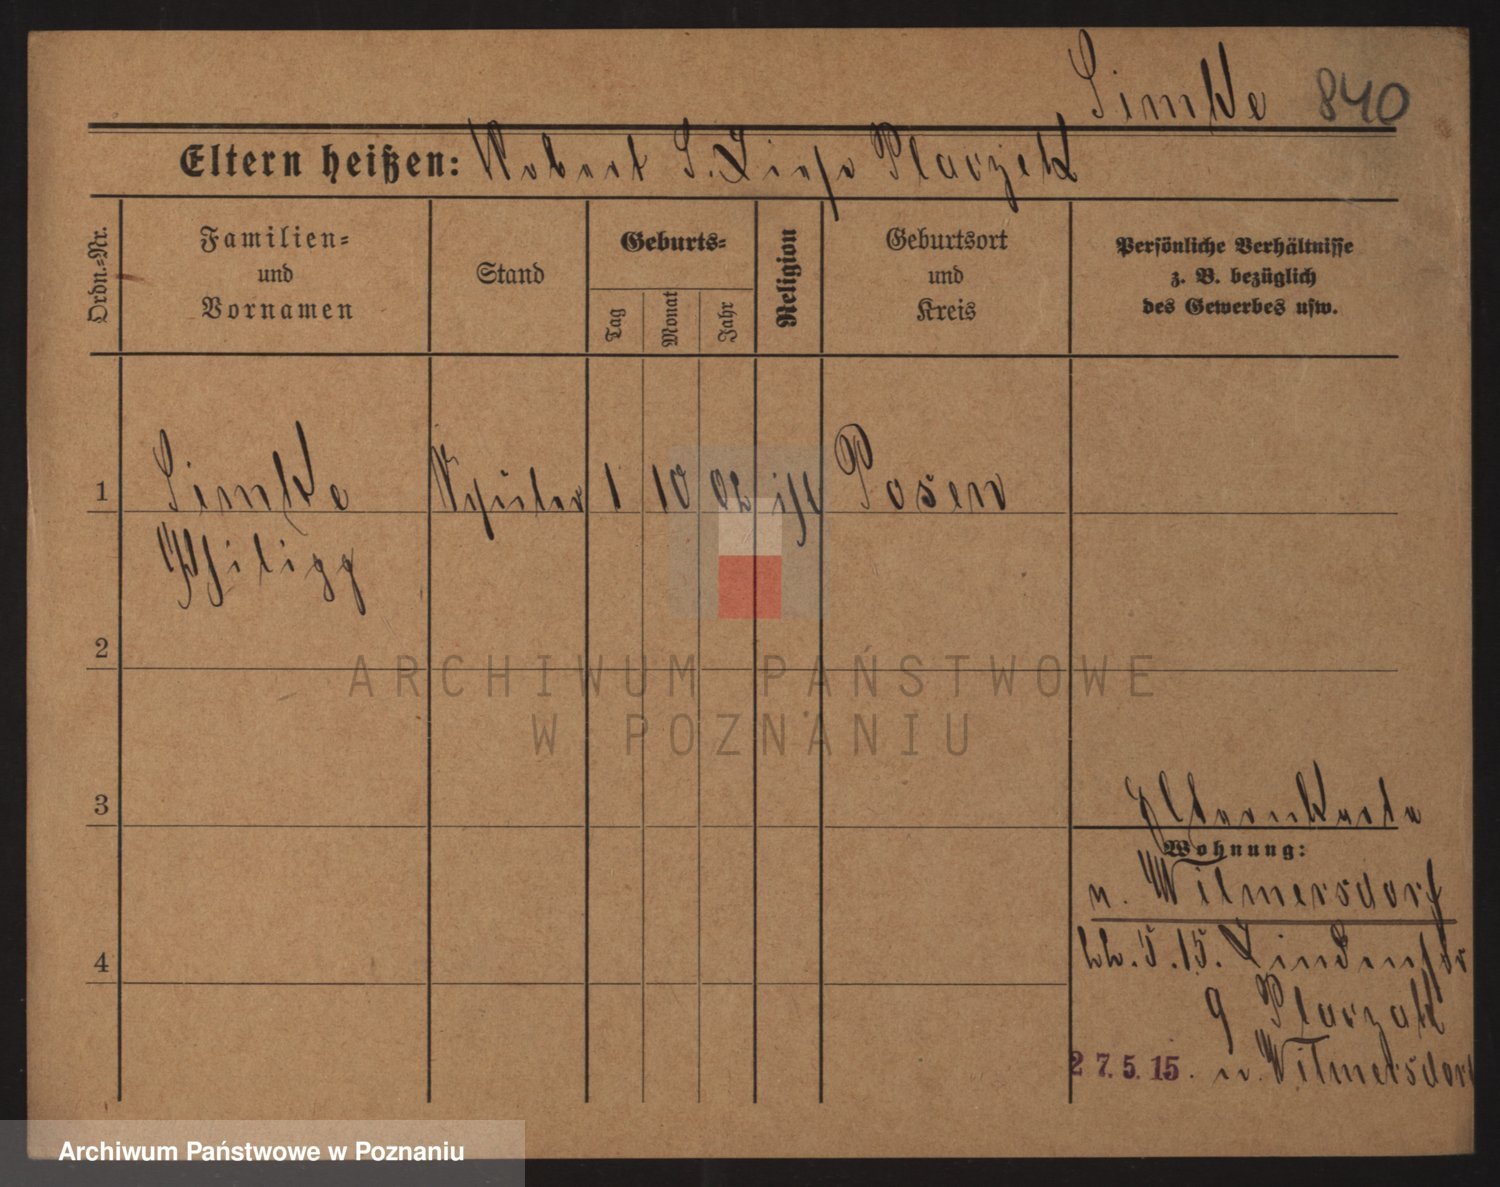 Simke 840
Eltern heißen: Robert S. Liese Placzek
Ordn.-Nr.
Familien-
und
Vornamen
Stand
Geburts-
Tag
Monat
Jahr
Religion
Geburtsort
und
Kreis
Persönliche Verhältnisse
z. B. bezüglich
des Gewerbes usw.
1 Simke Schüler 1 10 02 isr Posen
Philipp
2
ARCHIWUM PAŃSTWOWE
W POZNANIU
3
Elternkarte
Wohnung:
n. Wilmersdorf
4
22.5.15. Lindenstr
9 Placzek
27.5.15. n. Wilmersdorf
Archiwum Państwowe w Poznaniu